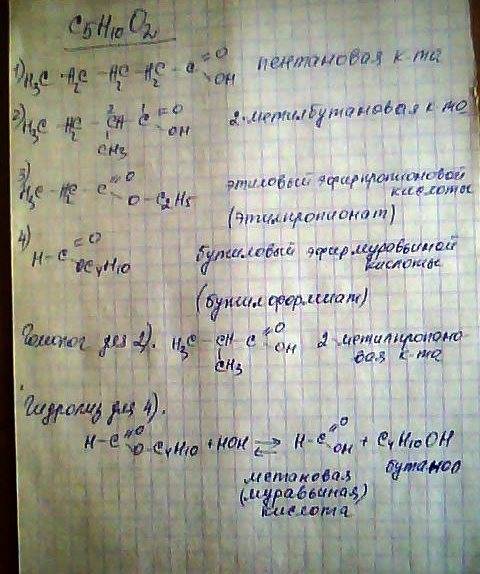 C5H10O2
1) H3C - H2C - H2C - H2C - C =O OH пентановая к-та
2) H3C - H2C - 2CH - 1C =O OH 2-метилбутановая к-та
CH3
3) H3C - H2C - C =O O - C2H5 этиловый эфир пропионовой
кислоты
(этилпропионат)
4) H - C =O OC4H10 бутиловый эфир муравьиной
кислоты
(бутилформиат)
Гомолог для 2). H3C - CH - C =O OH 2-метилпропано-
CH3 вая к-та
Гидролиз для 4).
H - C =O O - C4H10 + HOH ⇄ H - C =O OH + C4H10OH
метановая бутанол
(муравьиная)
кислота